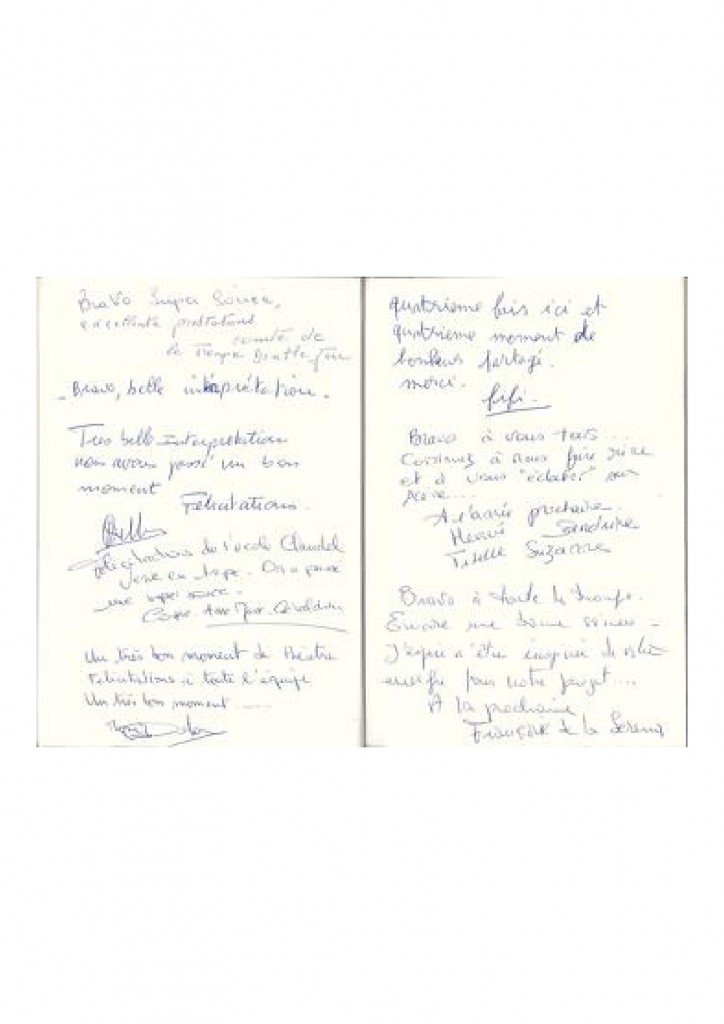 Bravo Super Soirée,
excellente prestations
comité de
la Troupe
- Bravo, belle interprétation.
Tres belle interpretation
nous avons passé un bon
moment
Félicitations.
Félicitations de l'école Claudel
une super soirée.
Un très bon moment de théâtre
Félicitations à toute l'équipe
Un très bon moment ......
quatrieme fois ici et
quatrieme moment de
bonheur partagé.
merci.
fifi.
Bravo à vous tous ...
Continuez à nous faire rire
et à vous "éclater" sur
scène....
A l'année prochaine.
Hervé Sandrine
Titelle Suzanne
Bravo à toute la troupe.
Encore une bonne soirée -
J'espère m'être inspirée de votre
énergie pour notre projet....
A la prochaine
Françoise de la